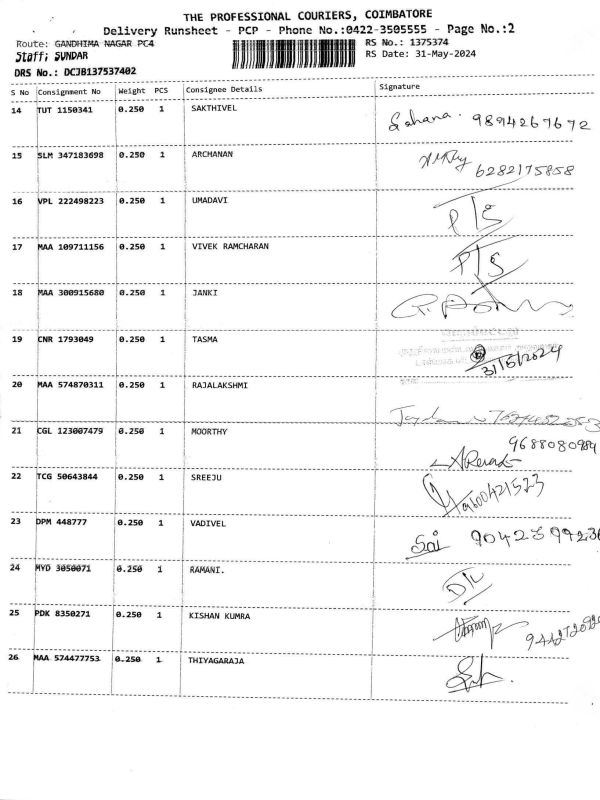 THE PROFESSIONAL COURIERS, COIMBATORE
Delivery Runsheet - PCP - Phone No.:0422-3505555 - Page No.:2
Route: GANDHIMA NAGAR PC4
RS No.: 1375374
Staff; SUNDAR
RS Date: 31-May-2024
DRS No.: DCJB137537402
S No Consignment No Weight PCS Consignee Details Signature
14 TUT 1150341 0.250 1 SAKTHIVEL
Sahana. 9894267672
15 SLM 347183698 0.250 1 ARCHANAN
6282175858
16 VPL 222498223 0.250 1 UMADAVI
P/S
17 MAA 109711156 0.250 1 VIVEK RAMCHARAN
P/S
18 MAA 300915680 0.250 1 JANKI
19 CNR 1793049 0.250 1 TASMA
31/5/2024
20 MAA 574870311 0.250 1 RAJALAKSHMI
21 CGL 123007479 0.250 1 MOORTHY
9688080984
22 TCG 50643844 0.250 1 SREEJU
9600421573
23 DPM 448777 0.250 1 VADIVEL
Sai
24 MYD 3050071 0.250 1 RAMANI.
D/L
25 PDK 8350271 0.250 1 KISHAN KUMRA
26 MAA 574477753 0.250 1 THIYAGARAJA